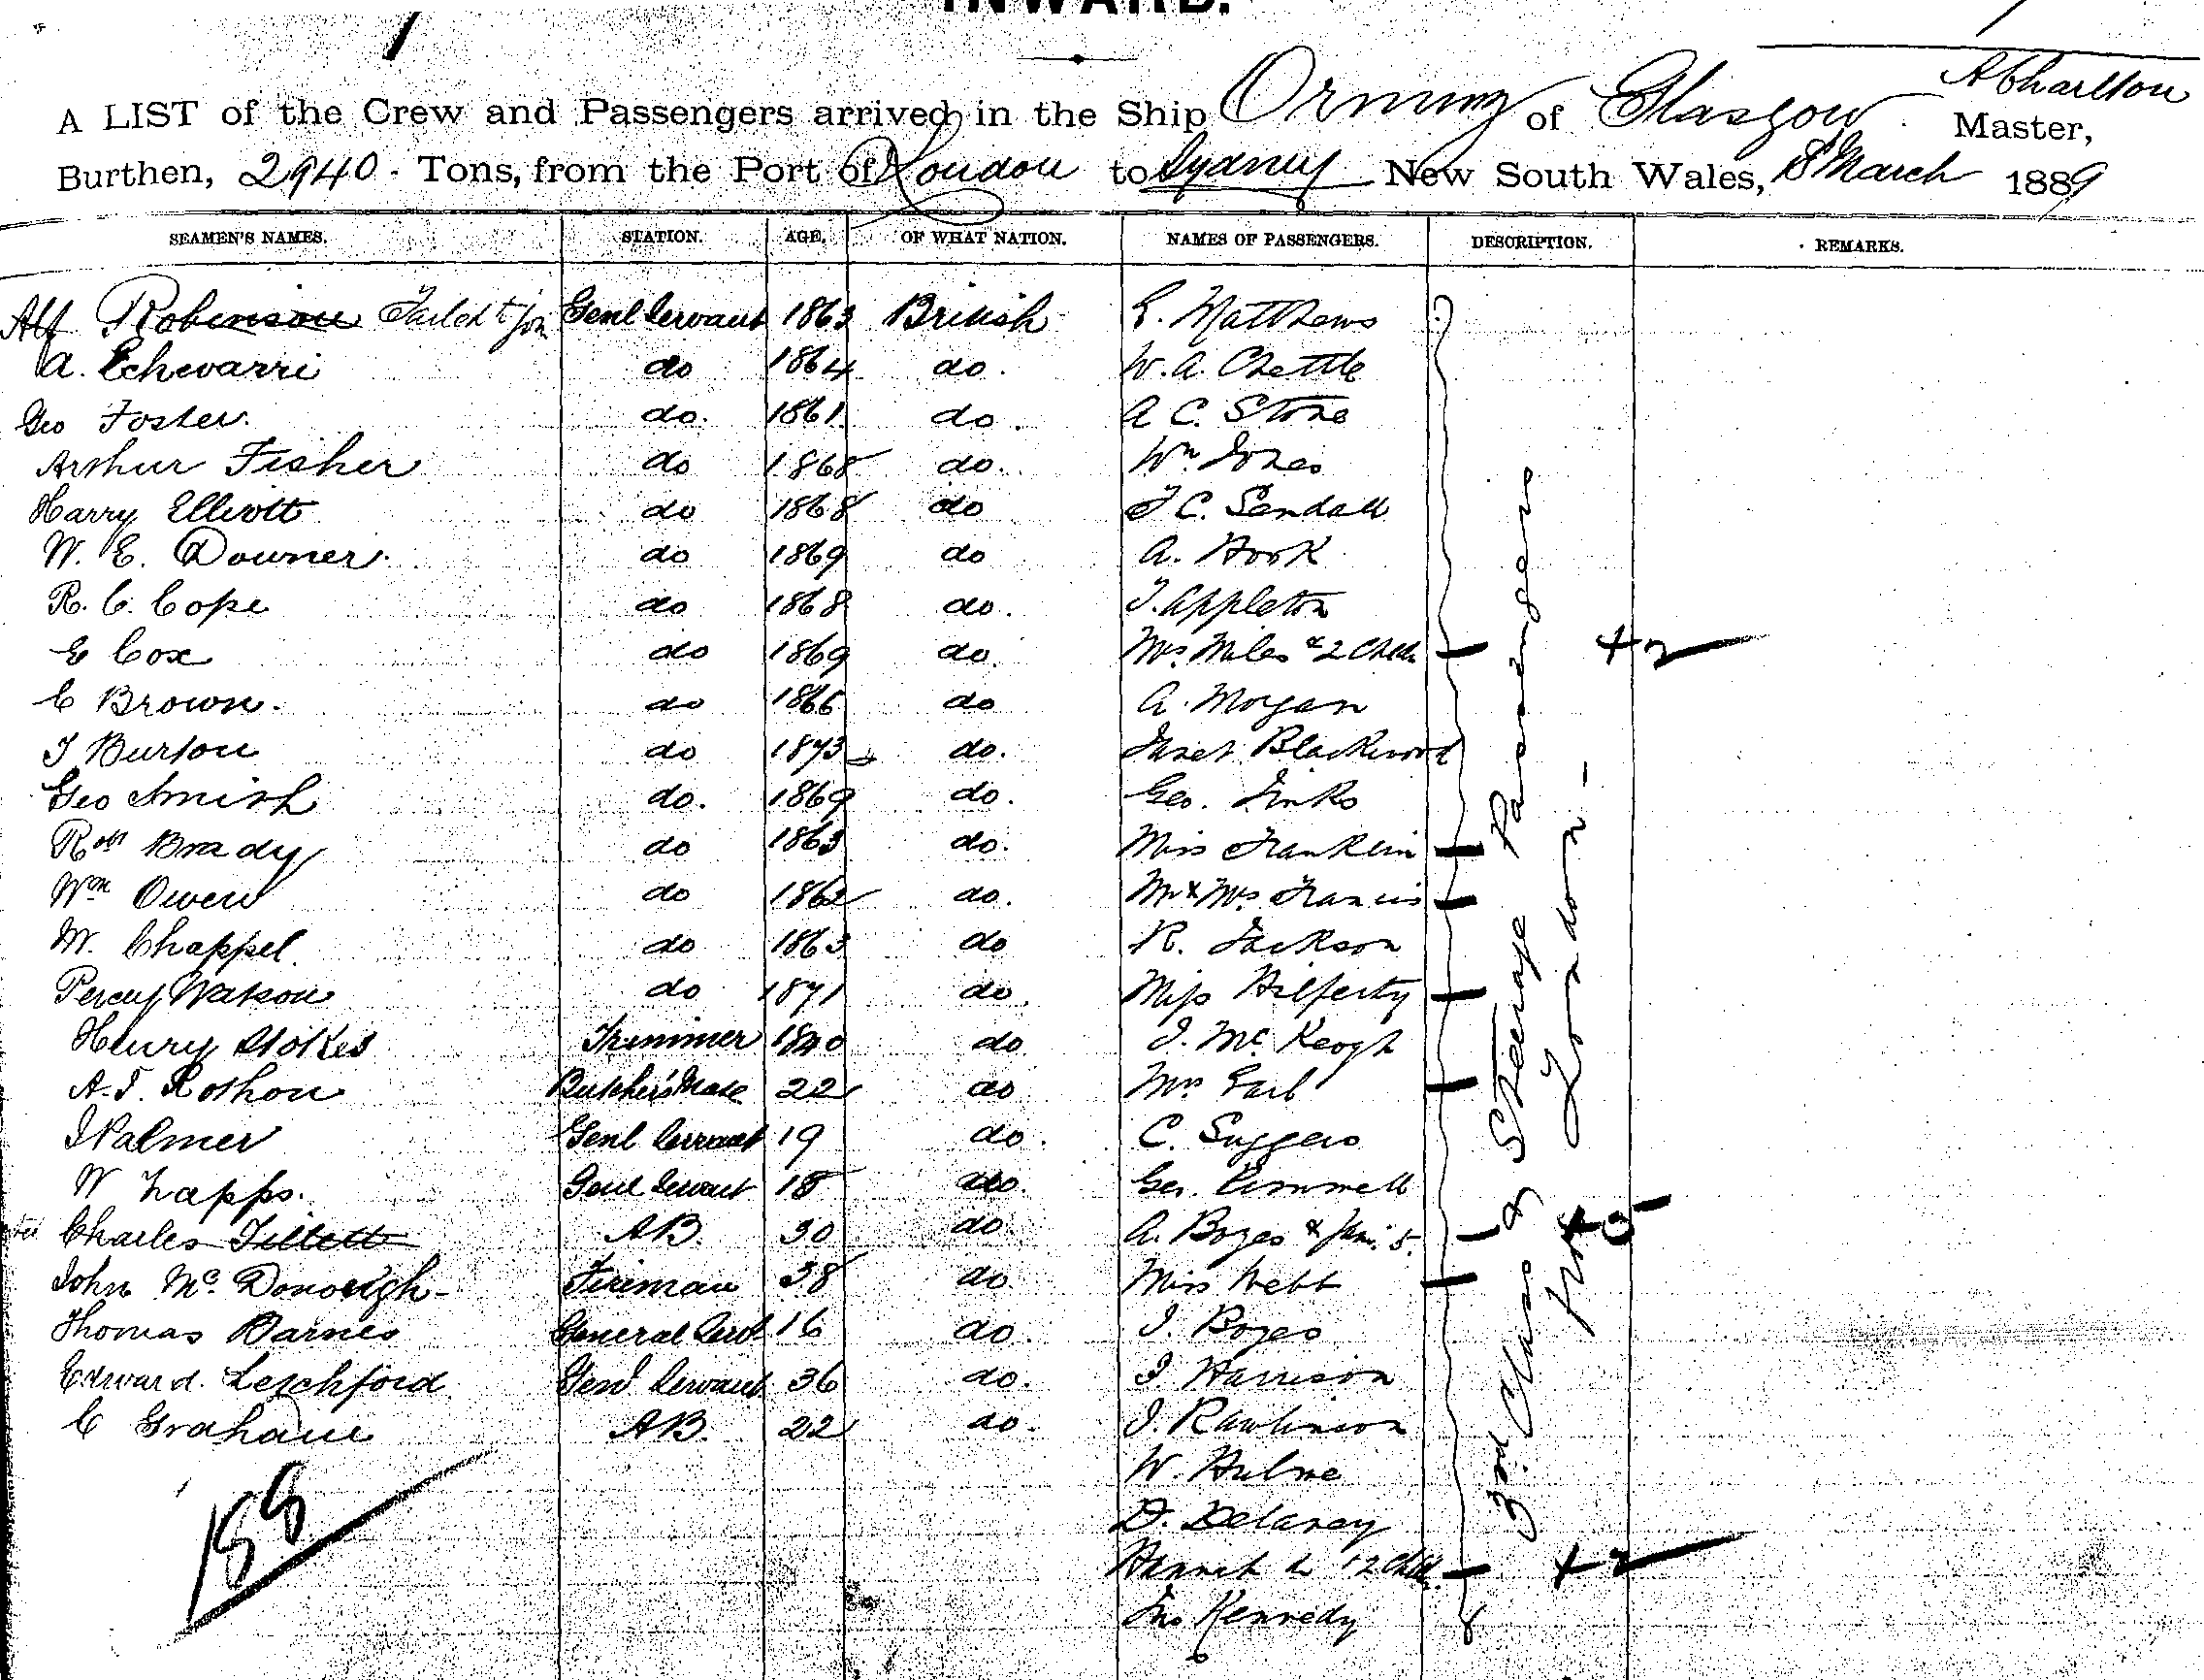 INWARD.
A Charlton
A LIST of the Crew and Passengers arrived in the Ship Ormuz of Glasgow. Master,
Burthen, 2940. Tons, from the Port of London to Sydney New South Wales, 8 March 1889
SEAMEN'S NAMES. STATION. AGE. OF WHAT NATION. NAMES OF PASSENGERS. DESCRIPTION. REMARKS.
Alf Robinson Failed to join Genl Servant 1863 British E. Matthews
A. Echevarri do 1864 do. W. A. Chettle
Geo Foster. do. 1861 do. A C. Stone
Arthur Fisher do 1868 do. Wm Jones
Harry Elliott do 1868 do F C. Sendall
W. E. Downer. do 1869 do A. Hook
R. C. Cope do 1868 do. J. Appleton
E Cox do 1869 do. Mrs Miles & 2 Chdn + 2
C Brown. do 1866 do A. Morgan
J Burton do 1873 do. Janet Blackwood
Geo Smith do. 1869 do. Geo. Jinks
Robt Brady do 1863 do. Miss Franklin
Wm Owen do 1862 do. Mr & Mrs Francis
W. Chappel. do 1863 do R. Jackson
Percy Watson do 1871 do. Miss Hilferty
Henry Stokes Trimmer 1840 do J. McKeogh
A. J. Rothon Butcher's Mate 22 do Mrs Earl
J Palmer Genl Servant 19 do. C. Suggers
W Lapps. Genl Servant 18 do. Geo. Pimmell
Charles Tillett AB. 30 do A. Boges & fam. 5. + 5
John McDonough Fireman 38 do Miss Webb
Thomas Barnes General Servt 16 do. J. Boges
Edward Letchford Genl Servant 36 do. J. Harrison
C Grahame AB. 22 do. J. Rawlinson
W. Hulme
D. Delaney
2 Chdn + 2
Jno Kennedy
3rd Class & Steerage Passengers
from London -
188